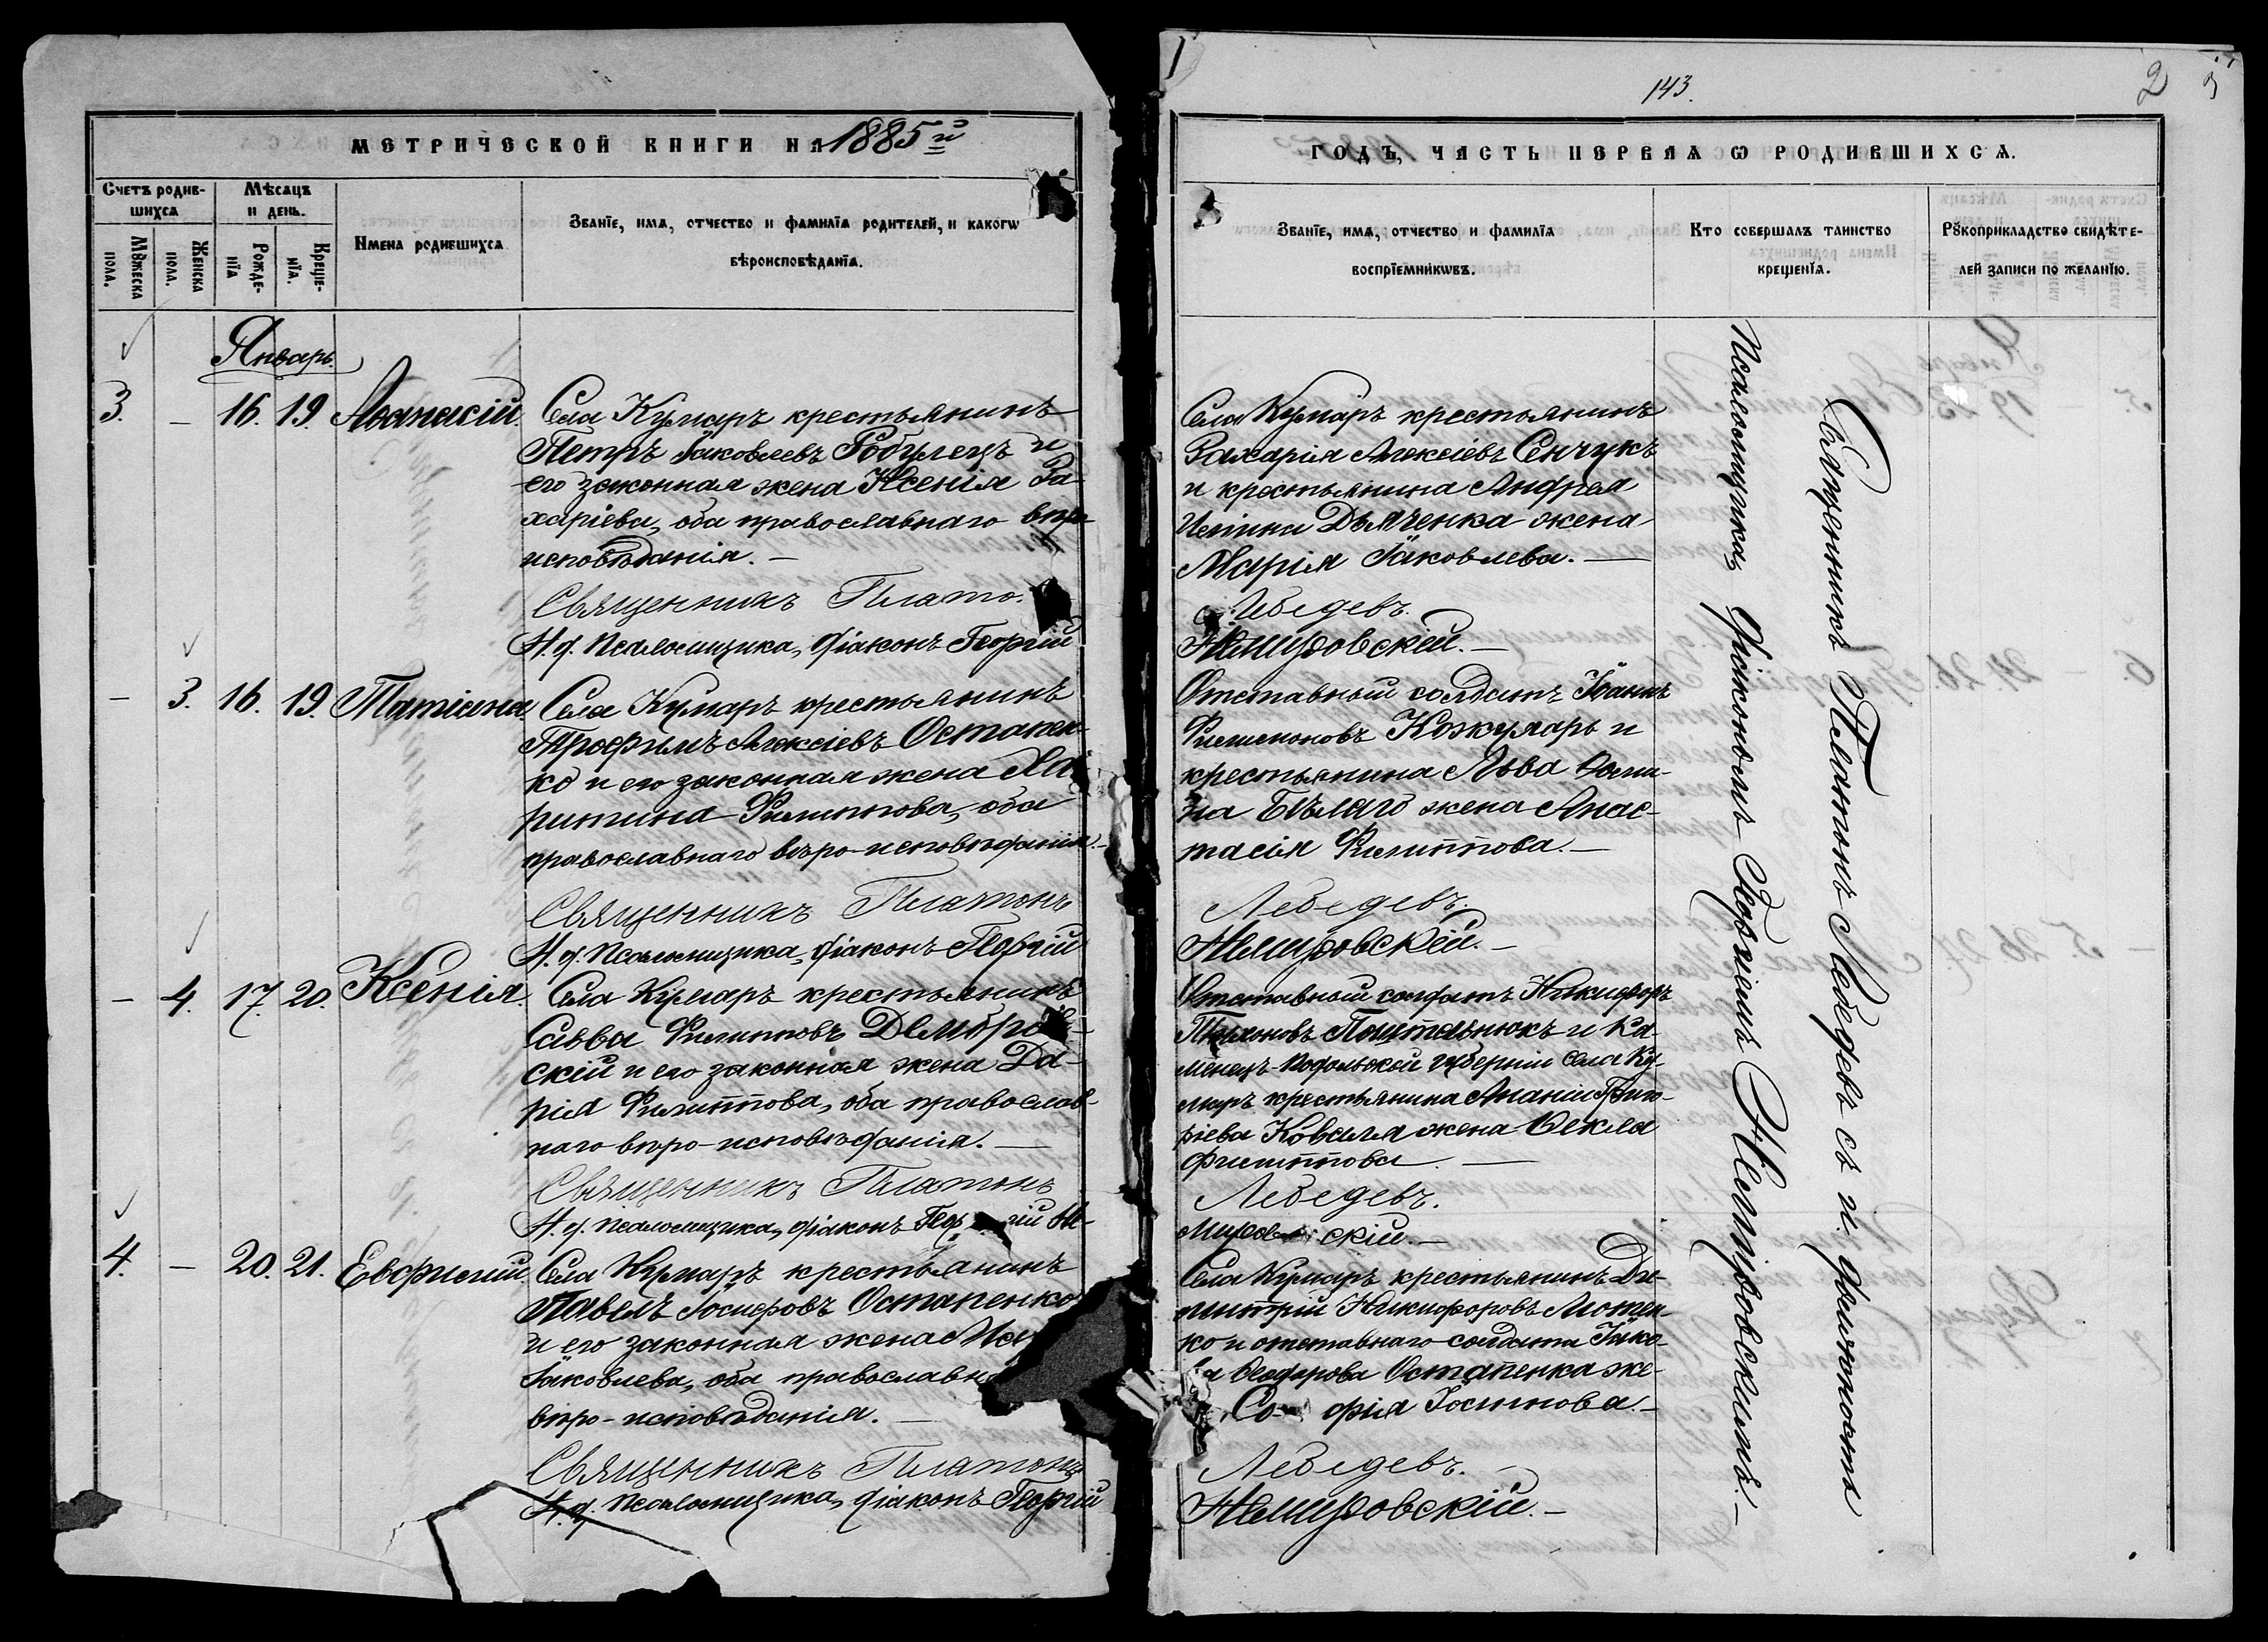 143.
2
МЕТРИЧЕСКОЙ КНИГИ НА 1885й
ГОДЪ, ЧАСТЬ ПЕРВАѦ Ѡ РОДИВШИХСѦ.
Счетъ родившихсѧ
Мꙋжеска пола.
Женска пола.
Мѣсѧцъ и день.
Рожденїѧ
Крещенїѧ.
Имена родившихсѧ
Званїе, имѧ, отчество и фамилїѧ родителей, и какогѡ
вѣроисповѣданїѧ.
Званїе, имѧ, отчество и фамилїѧ
воспрїемникѡвъ.
Кто совершалъ таинство
крещенїѧ.
Рꙋкоприкладство свидѣте-
лей записи по желанїю.
Январь.
3. – 16. 19. Аѳанасій.
Села Кумаръ крестьянинъ
Петръ Іаковлевъ Гобулецъ и
его законная жена Ксенія За-
харіева, оба православнаго вѣро-
исповѣданія. –
Священникъ Плато
И. д. Псаломщика, діаконъ Георгій
Села Кумаръ крестьянинъ
Захарія Алексіевъ Сенчукъ
и крестьянина Андрея
Дьяченка жена
Марія Іаковлева. –
Лебедевъ.
Немировскій. –
– 3. 16. 19. Татіана.
Села Кумаръ крестьянинъ
Трофимъ Алексіевъ Остапен-
ко и его законная жена Ха-
ритина Филиппова, оба
православнаго вѣро-исповѣданія. –
Священникъ Платонъ
И. д. Псаломщика, діаконъ Георгій
Отставный солдатъ Іоаннъ
Филимоновъ Кожумаръ и
крестьянина Льва Ѳоми-
на Бѣлаго жена Анас-
тасія Филиппова. –
Лебедевъ.
Немировскій. –
– 4. 17. 20. Ксенія.
Села Кумаръ крестьянинъ
Савва Филипповъ Домбров-
скій и его законная жена Да-
рія Филиппова, оба православ-
наго вѣро-исповѣданія. –
Священникъ Платонъ
И. д. Псаломщика, діаконъ Георгій Не-
Отставный солдатъ Никифоръ
Поштарнюкъ и Ка-
менецъ-Подольской губерніи села Ку-
маръ крестьянина Ананіи Григо-
ріева Коваля жена Ѳекла
Филиппова. –
Лебедевъ.
мировскій. –
4. – 20. 21. Евфимій.
Села Кумаръ крестьянинъ
Павелъ Іосифовъ Остапенко
и его законная жена
Іаковлева, оба православна
вѣро-исповѣданія. –
Священникъ Платонъ
И. д. Псаломщика, діаконъ Георгій
Села Кумаръ крестьянинъ Ди-
митрій Никифоровъ Лютен-
ко и отставнаго солдата Іако-
ва Ѳеодорова Остапенка же-
Софія Іосифова. –
Лебедевъ.
Немировскій. –
Священникъ Платонъ Лебедевъ съ и. должность
Псаломщика Діакономъ Георгіемъ Немировскимъ. –